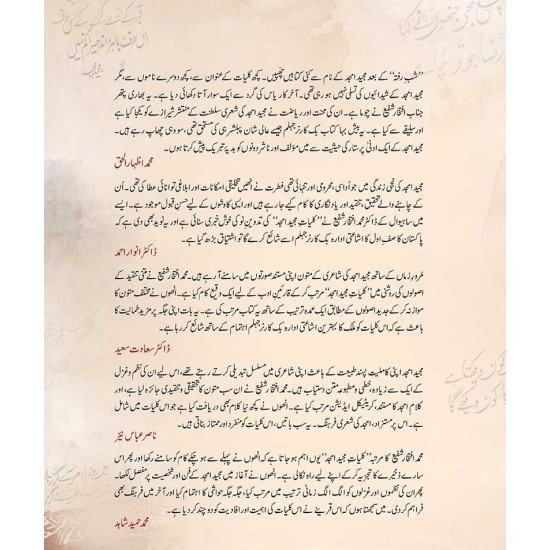 "شبِ رفتہ" کے بعد مجید امجد کے نام سے کئی کتابیں چھپیں۔ کچھ کلیات کے عنوان سے، کچھ دوسرے ناموں سے، مگر
مجید امجد کے شیدائیوں کی تسلی نہیں ہو رہی تھی۔ آخرکار یاس کی گرد سے ایک سوار آتا دکھائی دیا ہے۔ یہ بھاری پتھر
جناب افتخار شفیع نے چوما ہے۔ ان کی محنت اور ریاضت نے مجید امجد کی شعری سلطنت کے منتشر شیرازے کو یکجا کیا ہے
اور سلیقے سے کیا ہے۔ یہ بیش بہا کتاب بک کارنر جہلم جیسے عالی شان پبلشر ہی کی مستحق تھی، سو وہی چھاپ رہے ہیں۔
مجید امجد کے ایک ادنیٰ پرستار کی حیثیت سے میں مؤلف اور ناشر دونوں کو ہدیۂ تبریک پیش کرتا ہوں۔
محمد اظہار الحق
مجید امجد کی نجی زندگی میں جو اُداسی، محرومی اور تنہائی تھی فطرت نے انھیں تخلیقی امکانات اور ابلاغی توانائی عطا کی تھی۔ اُن
کے چاہنے والے تحقیق، تنقید اور یادنگاری کا کام کیے جا رہے ہیں اور ایسی کاوشوں کے لیے حسنِ قبول موجود ہے۔ ایسے
میں ساہیوال کے ڈاکٹر محمد افتخار شفیع نے "کلیاتِ مجید امجد" کی تدوینِ نو کی خوش خبری سنائی ہے اور یہ نوید بھی دی ہے کہ
پاکستان کا صف اول کا اشاعتی ادارہ بک کارنر جہلم اسے شائع کرے گا تو اشتیاق بڑھ گیا ہے۔
ڈاکٹر انوار احمد
مرورِ زماں کے ساتھ مجید امجد کی شاعری کے متون اپنی مستند صورتوں میں سامنے آ رہے ہیں۔ محمد افتخار شفیع نے متنی تنقید کے
اصولوں کی روشنی میں "کلیاتِ مجید امجد" مرتب کر کے قارئینِ ادب کے لیے ایک وقیع کام کیا ہے۔ انھوں نے مختلف متون کا
موازنہ کر کے جدید اصولوں کے مطابق ایک عمدہ ترتیب کے ساتھ یہ کتاب مرتب کی ہے۔ یہ بات اپنی جگہ پر مزید طمانیت کا
باعث ہے کہ اس کلیات کو ملک کا بہترین اشاعتی ادارہ بک کارنر جہلم اہتمام کے ساتھ شائع کر رہا ہے۔
ڈاکٹر سعادت سعید
مجید امجد اپنی کاملیت پسند طبیعت کے باعث اپنی شاعری میں مسلسل تبدیلی کرتے رہتے تھے، اس لیے ان کی نظم و غزل
کے ایک سے زیادہ، خطی و مطبوعہ متن دستیاب ہیں۔ محمد افتخار شفیع نے ان سب متون کا تحقیقی و تنقیدی جائزہ لیا ہے، اور
کلامِ امجد کا مستند، کریٹیکل ایڈیشن مرتب کیا ہے۔ انھوں نے کچھ نیا کلام بھی دریافت کیا ہے جو اس کلیات میں شامل
ہے۔ اس پر مستزاد، امجد کی شعری فرہنگ۔ یہ سب باتیں، اس کلیات کو منفرد اور ممتاز بناتی ہیں۔
ناصر عباس نیّر
محمد افتخار شفیع کا مرتبہ "کلیاتِ مجید امجد" یوں اہم ہو جاتا ہے کہ انھوں نے پہلے سے ہو چکے کام کو سامنے رکھا اور پھر اس
سارے ذخیرے کا تجزیہ کر کے اپنے لیے راہ نکالی ہے۔ انھوں نے آغاز میں مجید امجد کے فن اور شخصیت پر مفصل لکھا۔
پھر ان کی نظموں اور غزلوں کو الگ الگ زمانی ترتیب میں مرتب کیا، جگہ جگہ حواشی کا اہتمام کیا ہے اور آخر میں فرہنگ بھی
فراہم کر دی۔ میں سمجھتا ہوں کہ اس قرینے نے اس کلیات کی اہمیت اور افادیت کو دو چند کر دیا ہے۔
محمد حمید شاہد